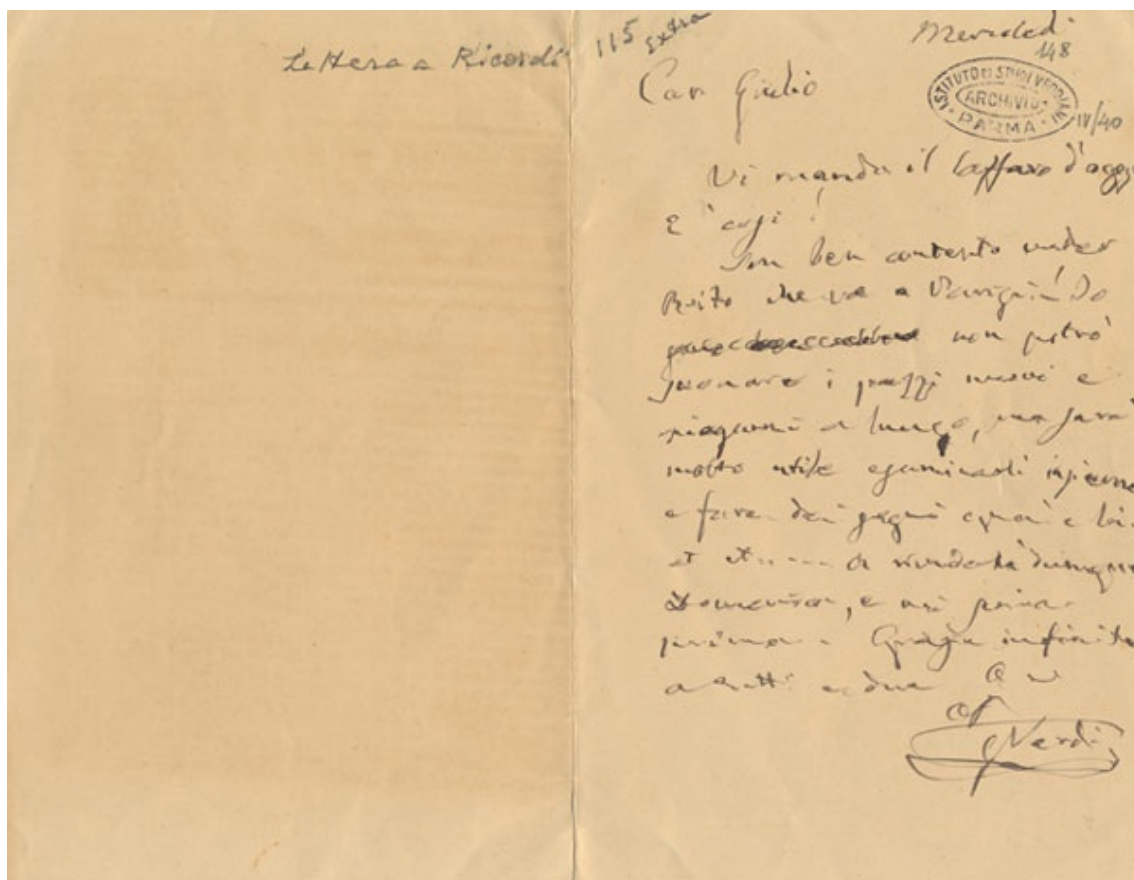 Lettera a Ricordi 115 extra
Mercoledi
148
ISTITUTO DI STUDI VERDIANI
ARCHIVIO
PARMA
IV/40
Caro Giulio
Vi mando il Caffaro d'oggi
E' così!
Son ben contento veder
Boito che va a Parigi! Io
non potrò
suonare i pezzi nuovi e
a lungo, ma sarà
molto utile esaminarli insieme
e fare dei segni quà e là
et et A rivederla dunque
Domenica, e noi prima
Grazie infinite
a tutti e due
aff
GVerdi